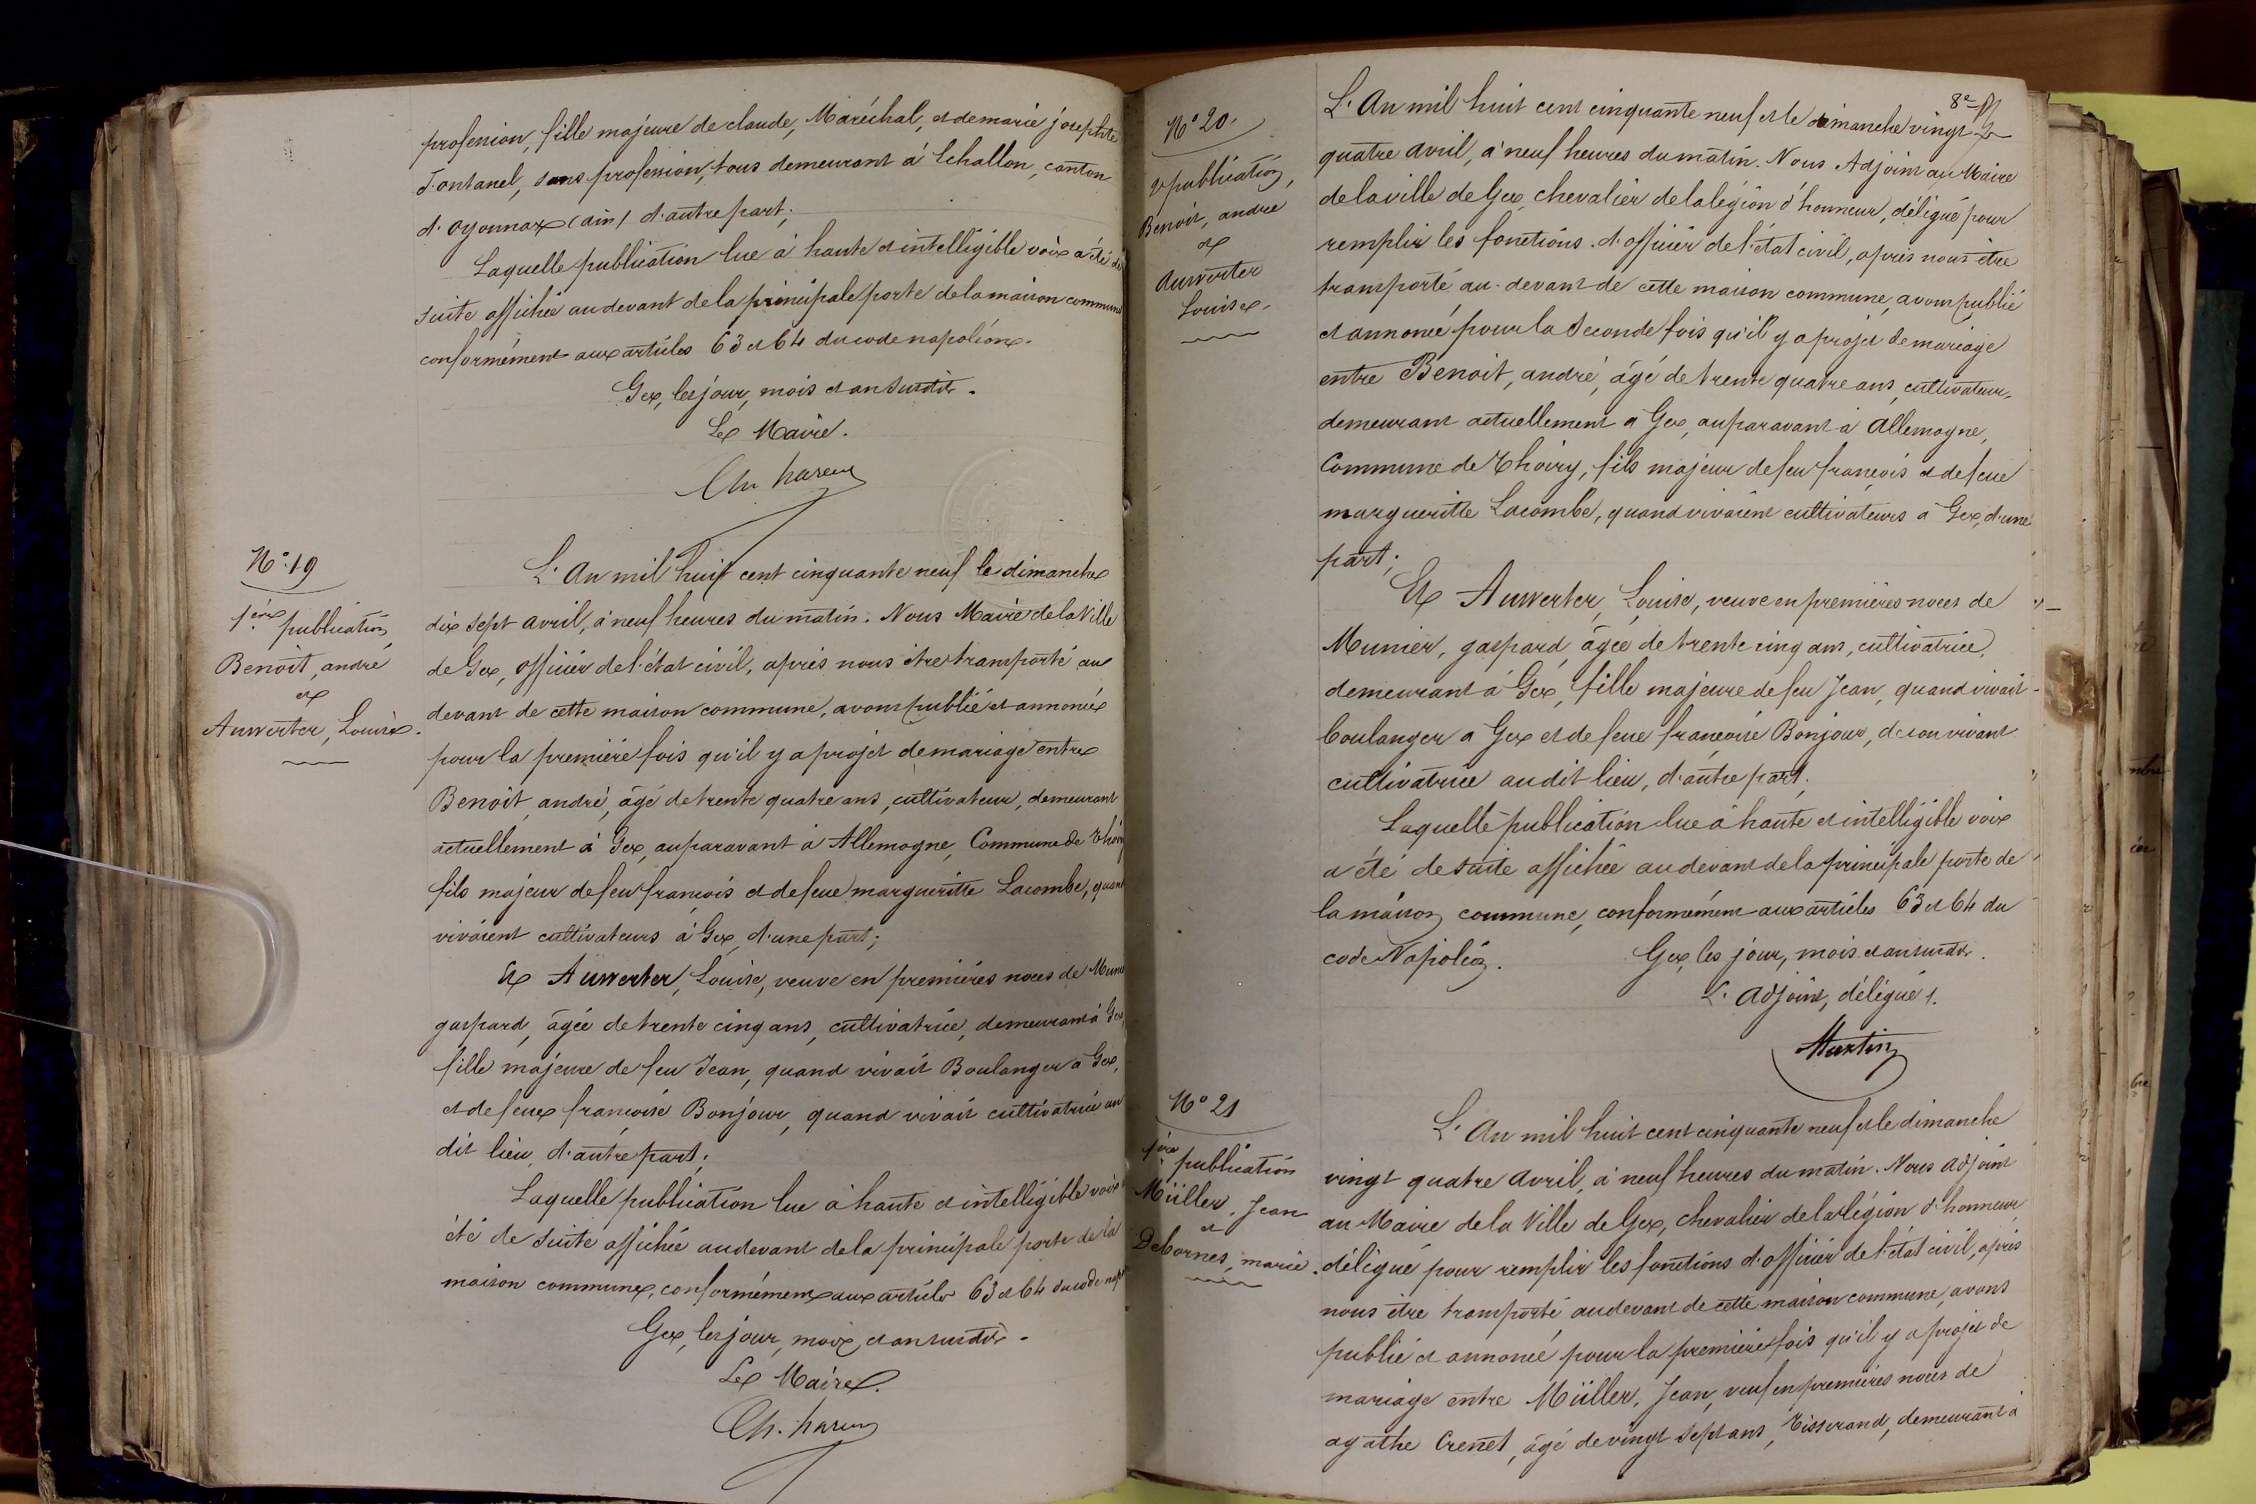 profession, fille majeure de claude, Maréchal, et de marie josephte
Fontanel, sans profession, tous demeurant à Echallon, canton
d'oyonnax (ain) d'autre part;
Laquelle publication lue à haute et intelligible voix a été de
suite affichée au devant de la principale porte de la maison commune
conformément aux articles 63 et 64 du code napoléon.
Gex, les jour, mois et an susdits.
Le Maire.
N°: 19
1ère publication
Benoit, andré
et
Anwerter, Louise.
L'An mil huit cent cinquante neuf le dimanche
dix sept avril, à neuf heures du matin. Nous Maire de la Ville
de Gex, officier de l'état civil, après nous être transporté au
devant de cette maison commune, avons publié et annoncé
pour la première fois qu'il y a projet de mariage entre
Benoit, andré, âgé de trente quatre ans, cultivateur, demeurant
actuellement à Gex, auparavant à Allemogne, Commune de Thoiry
fils majeur de feu françois et de feue margueritte Lacombe, quand
vivaient cultivateurs à Gex, d'une part;
Et Anwerter, Louise, veuve en premières noces de
gaspard, âgée de trente cinq ans, cultivatrice, demeurant à Gex,
fille majeure de feu Jean, quand vivait Boulanger à Gex,
et de feue françoise Bonjour, quand vivait cultivatrice au
dit lieu, d'autre part;
Laquelle publication lue à haute et intelligible voix a
été de suite affichée au devant de la principale porte de la
maison commune, conformément aux articles 63 et 64 du code
Gex, les jour, mois et an susdits.
Le Maire.
8e
N° 20.
2e publication,
Benoit, andré
et
Anwerter
Louise.
L'An mil huit cent cinquante neuf et le dimanche vingt
quatre avril, à neuf heures du matin. Nous Adjoint au Maire
de la ville de Gex, chevalier de la légion d'honneur, délégué pour
remplir les fonctions d'officier de l'état civil, après nous être
transporté au-devant de cette maison commune, avons publié
et annoncé pour la Seconde fois qu'il y a projet de mariage
entre Benoit, andré, âgé de trente quatre ans, cultivateur,
demeurant actuellement à Gex, auparavant à Allemogne,
Commune de Thoiry, fils majeur de feu françois et de feue
margueritte Lacombe, quand vivaient cultivateurs à Gex, d'une
part;
Et Anwerter, Louise, veuve en premières noces de
Munier, gaspard, âgée de trente cinq ans, cultivatrice,
demeurant à Gex, fille majeure de feu Jean, quand vivait
boulanger à Gex et de feue françoise Bonjour, de son vivant
cultivatrice audit lieu, d'autre part;
Laquelle publication lue à haute et intelligible voix
a été de suite affichée au devant de la principale porte de
la maison commune, conformément aux articles 63 et 64 du
code Napoléon. Gex, les jour, mois et an susdits.
L'Adjoint, délégué.
Martin
N° 21
1ère publication
Müller, Jean
et
Debornes, marie.
L'An mil huit cent cinquante neuf et le dimanche
vingt quatre avril, à neuf heures du matin. Nous adjoint
au Maire de la Ville de Gex, chevalier de la légion d'honneur,
délégué pour remplir les fonctions d'officier de l'état civil, après
nous être transporté au devant de cette maison commune, avons
publié et annoncé pour la première fois qu'il y a projet de
mariage entre Müller, Jean, veuf en premières noces de
agathe Crenet, âgé de vingt sept ans, Tisserand, demeurant à